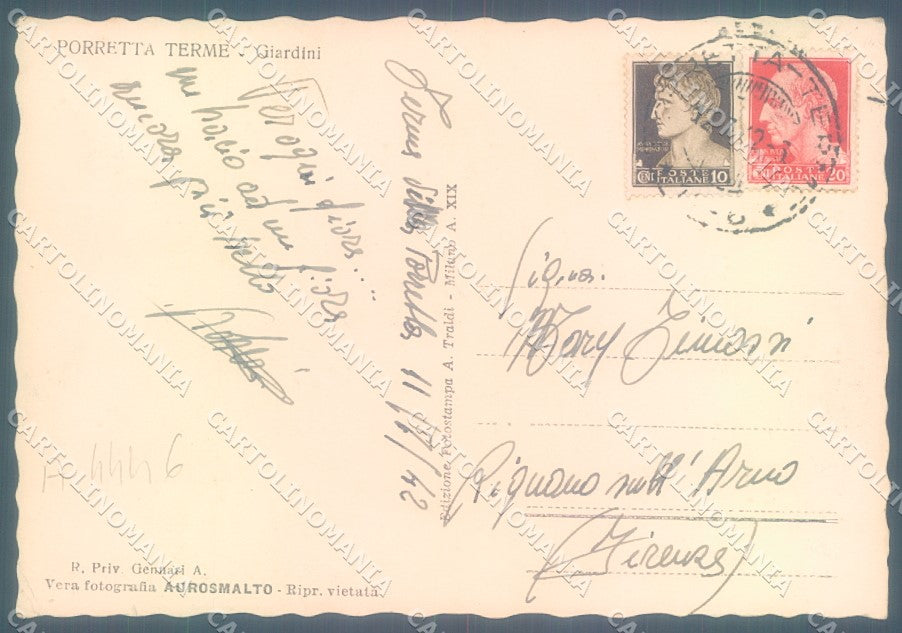 PORRETTA TERME - Giardini
Dai pogrini fiori...
un bacio ad un fiore
ancora più bello
11/7/42
Edizione Fotostampa A. Traldi - Milano A. XIX
POSTE
ITALIANE 10
POSTE
ITALIANE 20
Sig.na
Mary
Rignano sull'Arno
(Firenze)
A 4446
R. Priv. Gennari A.
Vera fotografia AUROSMALTO - Ripr. vietata
CARTOLINOMANIA